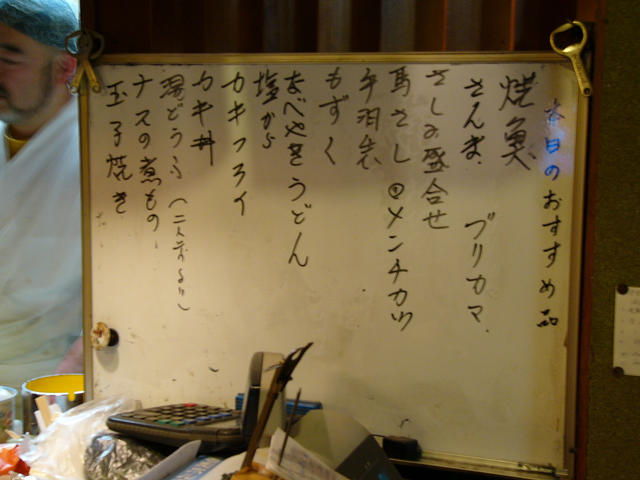 本日のおすすめ品
焼魚
さんま ブリカマ
さしみ盛合せ
馬さし メンチカツ
もずく
なべやきうどん
塩から
カキフライ
カキ丼
湯どうふ(二人前より)
ナスの煮もの
玉子焼き